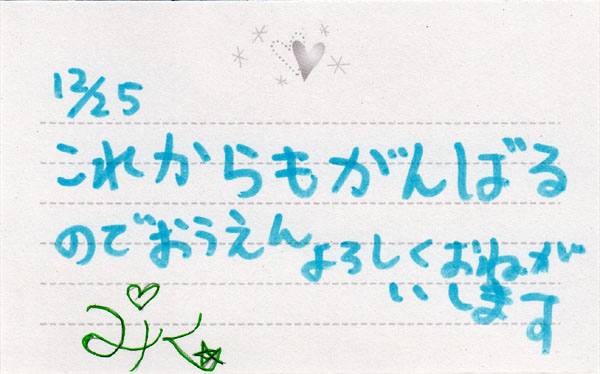 12/25
これからもがんばる
のでおうえんよろしくおねが
いします
みく